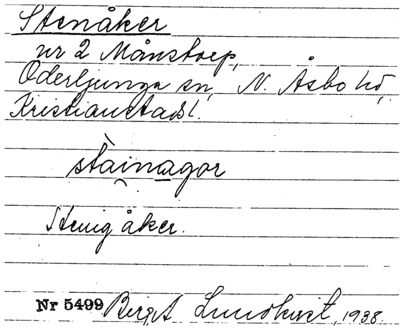 Stenåker
nr 2 Månstorp,
Oderljunga sn, N. Åsbo hd,
Kristianstads l.
stainagor
Stenig åker.
Nr 5499 Berget Lundkvist, 1938.